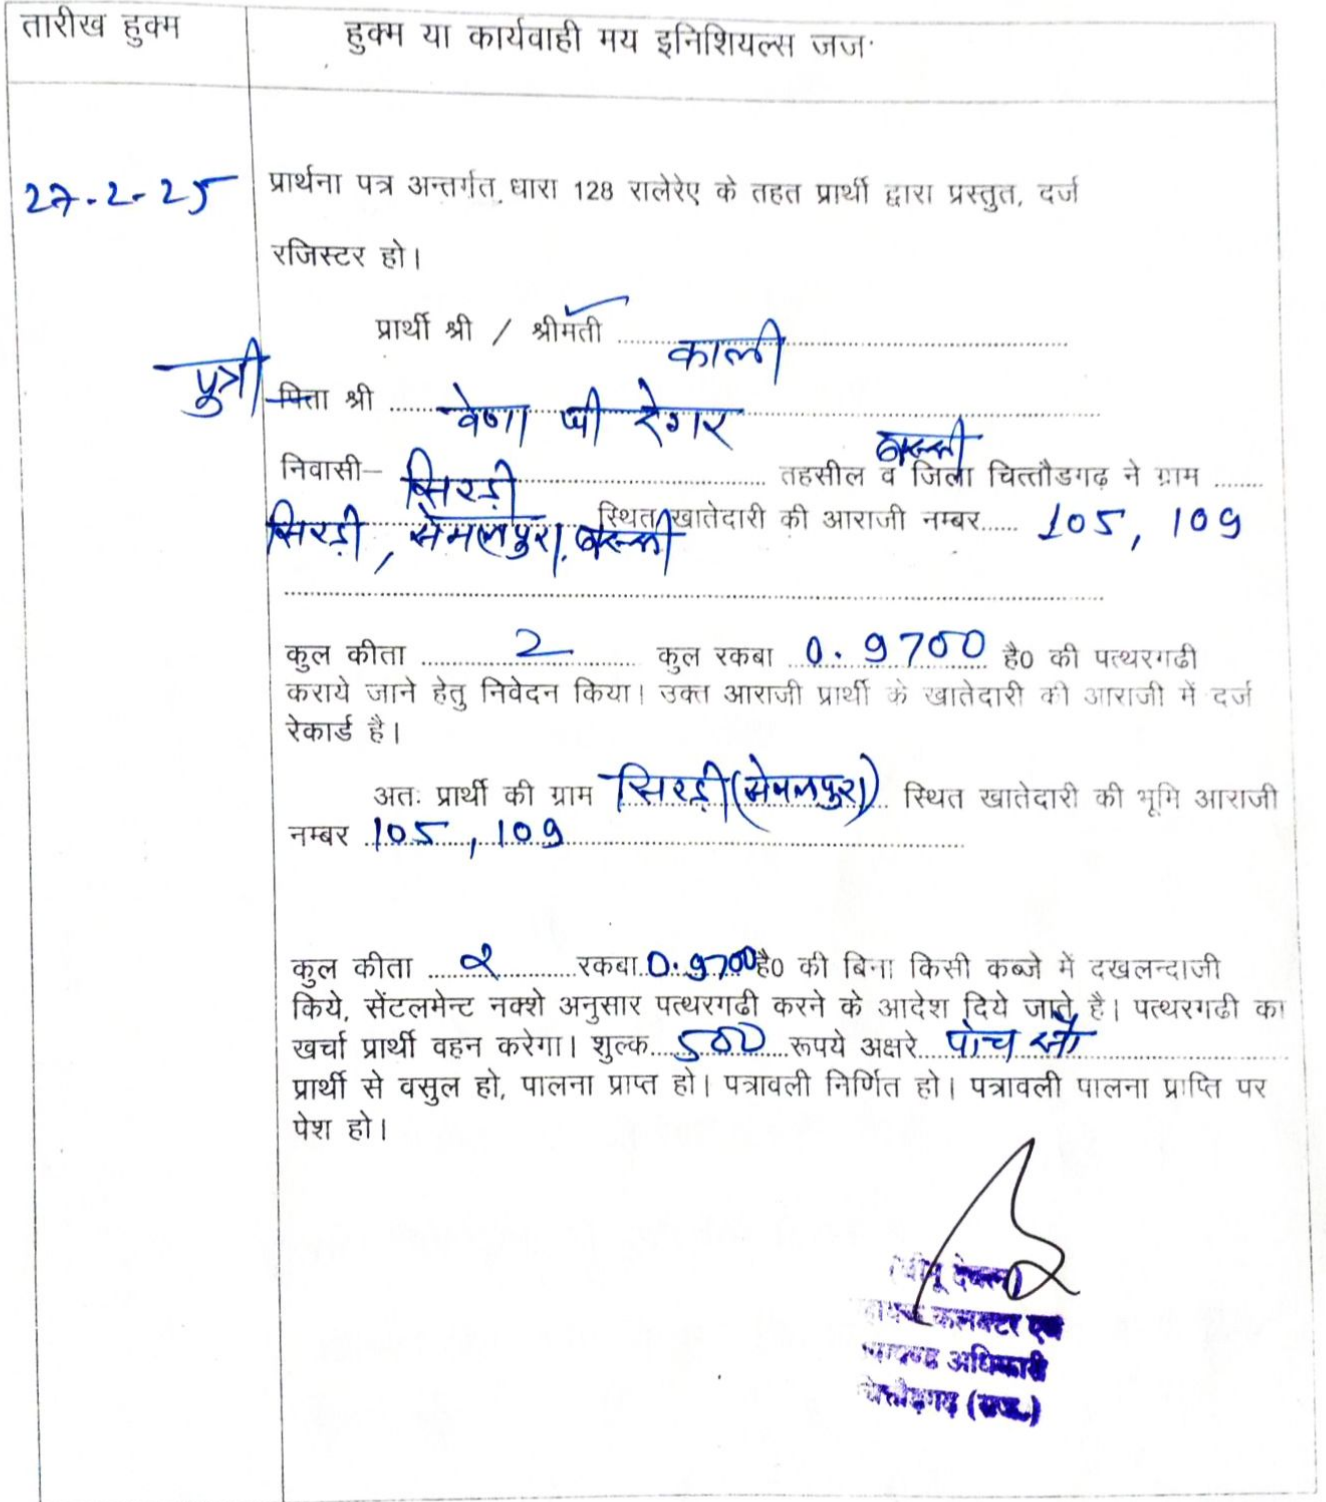 तारीख हुक्म
हुक्म या कार्यवाही मय इनिशियल्स जज
27-2-25
प्रार्थना पत्र अन्तर्गत धारा 128 रालेरेए के तहत प्रार्थी द्वारा प्रस्तुत, दर्ज
रजिस्टर हो।
प्रार्थी श्री / श्रीमती काली
पुत्री पिता श्री वेणा जी रेगर
बस्सी
निवासी– सिरडी तहसील व जिला चित्तौडगढ़ ने ग्राम
सिरडी, सेमलपुरा, बस्सी स्थित खातेदारी की आराजी नम्बर 105, 109
कुल कीता 2 कुल रकबा 0.9700 है0 की पत्थरगढी
कराये जाने हेतु निवेदन किया। उक्त आराजी प्रार्थी के खातेदारी की आराजी में दर्ज
रेकार्ड है।
अतः प्रार्थी की ग्राम सिरडी (सेमलपुरा) स्थित खातेदारी की भूमि आराजी
नम्बर 105, 109
कुल कीता 2 रकबा 0.9700 है0 की बिना किसी कब्जे में दखलन्दाजी
किये, सेंटलमेन्ट नक्शे अनुसार पत्थरगढी करने के आदेश दिये जाते है। पत्थरगढी का
खर्चा प्रार्थी वहन करेगा। शुल्क 500 रूपये अक्षरे पांच सौ
प्रार्थी से वसुल हो, पालना प्राप्त हो। पत्रावली निर्णित हो। पत्रावली पालना प्राप्ति पर
पेश हो।
कलक्टर एवं
अधिकारी
चित्तौड़गढ़ (राज.)